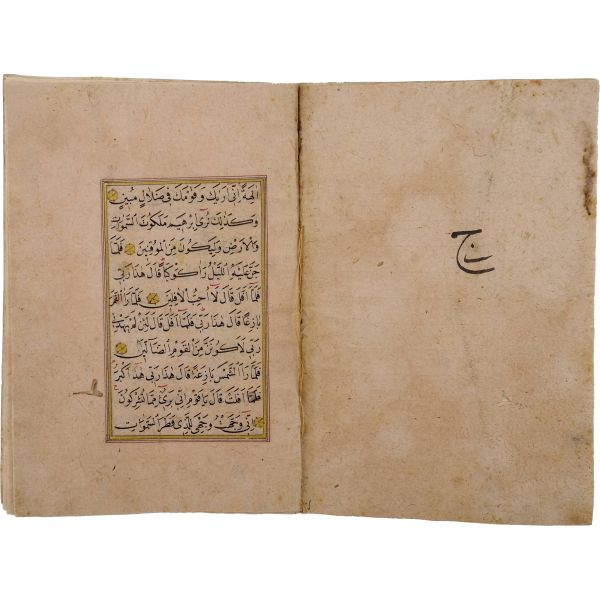 اٰلِهَةً اِنّٖى اَرٰيكَ وَقَوْمَكَ فٖى ضَلَالٍ مُبٖينٍ
وَكَذٰلِكَ نُرٖى اِبْرٰهٖيمَ مَلَكُوتَ السَّمٰوَاتِ
وَالْاَرْضِ وَلِيَكُونَ مِنَ الْمُوقِنٖينَ فَلَمَّا
جَنَّ عَلَيْهِ الَّيْلُ رَاٰ كَوْكَبًا قَالَ هٰذَا رَبّٖى
فَلَمَّا اَفَلَ قَالَ لَا اُحِبُّ الْاٰفِلٖينَ فَلَمَّا رَاَ الْقَمَرَ
بَازِغًا قَالَ هٰذَا رَبّٖى فَلَمَّا اَفَلَ قَالَ لَئِنْ لَمْ يَهْدِنٖى
رَبّٖى لَاَكُونَنَّ مِنَ الْقَوْمِ الضَّالّٖينَ
فَلَمَّا رَاَ الشَّمْسَ بَازِغَةً قَالَ هٰذَا رَبّٖى هٰذَا اَكْبَرُ
فَلَمَّا اَفَلَتْ قَالَ يَا قَوْمِ اِنّٖى بَرٖىءٌ مِمَّا تُشْرِكُونَ
اِنّٖى وَجَّهْتُ وَجْهِىَ لِلَّذٖى فَطَرَ السَّمٰوَاتِ